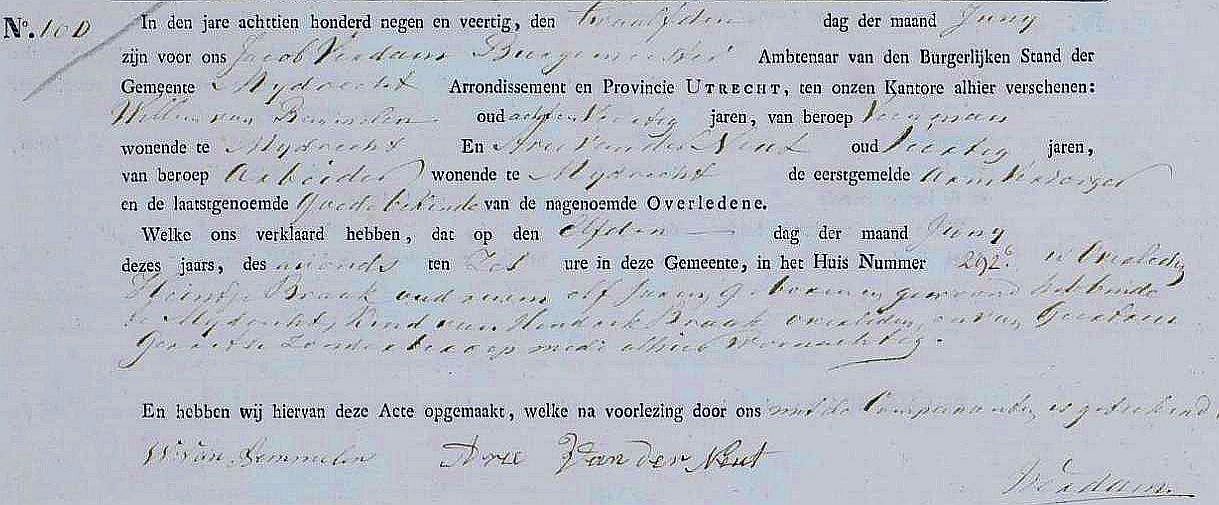 N.o 100 In den jare achttien honderd negen en veertig, den twaalfden dag der maand Juny
zijn voor ons Jacob Verdam Burgemeester Ambtenaar van den Burgerlijken Stand der
Gemeente Mydrecht Arrondissement en Provincie UTRECHT, ten onzen Kantore alhier verschenen:
Willem van Bemmelen oud acht en Veertig jaren, van beroep Veenman
wonende te Mydrecht En Arie van der Neut oud Veertig jaren,
van beroep Arbeider wonende te Mydrecht de eerstgemelde Armverzorger
en de laatstgenoemde Goede bekende van de nagenoemde Overledene.
Welke ons verklaard hebben, dat op den Elfden dag der maand Juny
dezes jaars, des avonds ten Zes ure in deze Gemeente, in het Huis Nummer 292 is Overleden
Heintje Braak oud ruim elf Jaren, Geboren en gewoond hebbende
te Mydrecht, Kind van Hendrik Braak overleden, en van
Gerritse Zonder beroep mede alhier Woonachtig.
En hebben wij hiervan deze Acte opgemaakt, welke na voorlezing door ons met de Comparanten is geteekend
W van Bemmelen Arie Van der Neut
Verdam